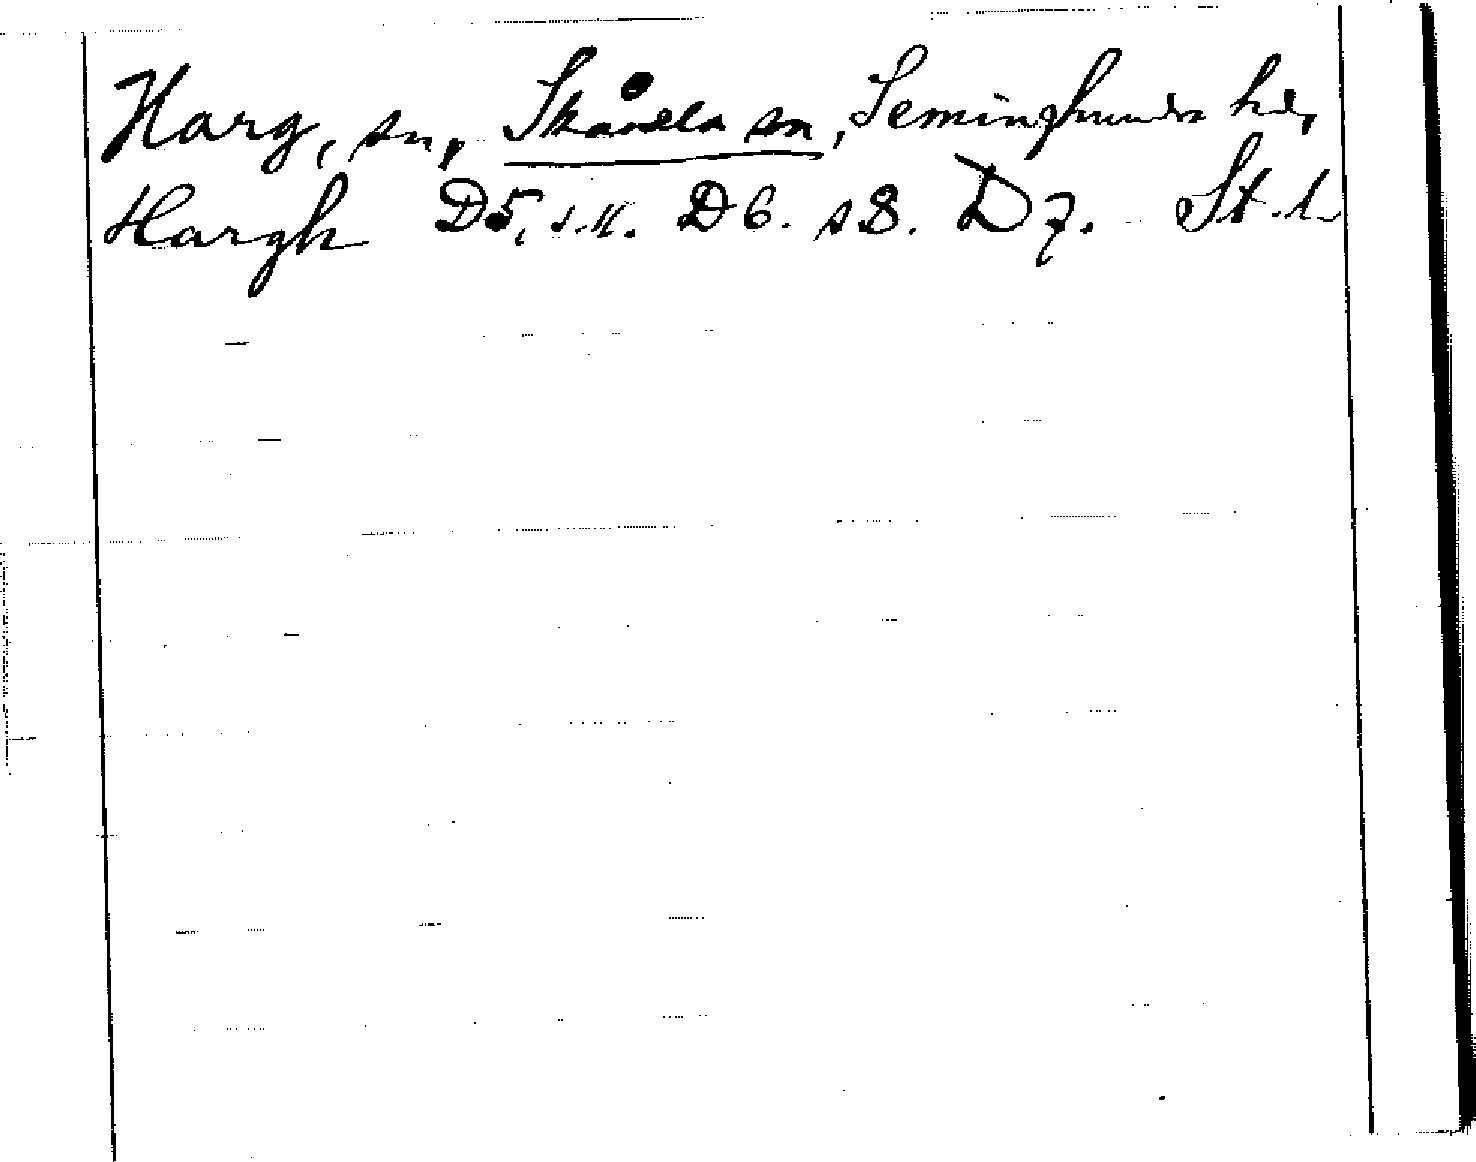 Harg, sn, Skånela sn, Seminghundra hd,
Hargh D5, s. 11. D6. s 8. D7. St. l.